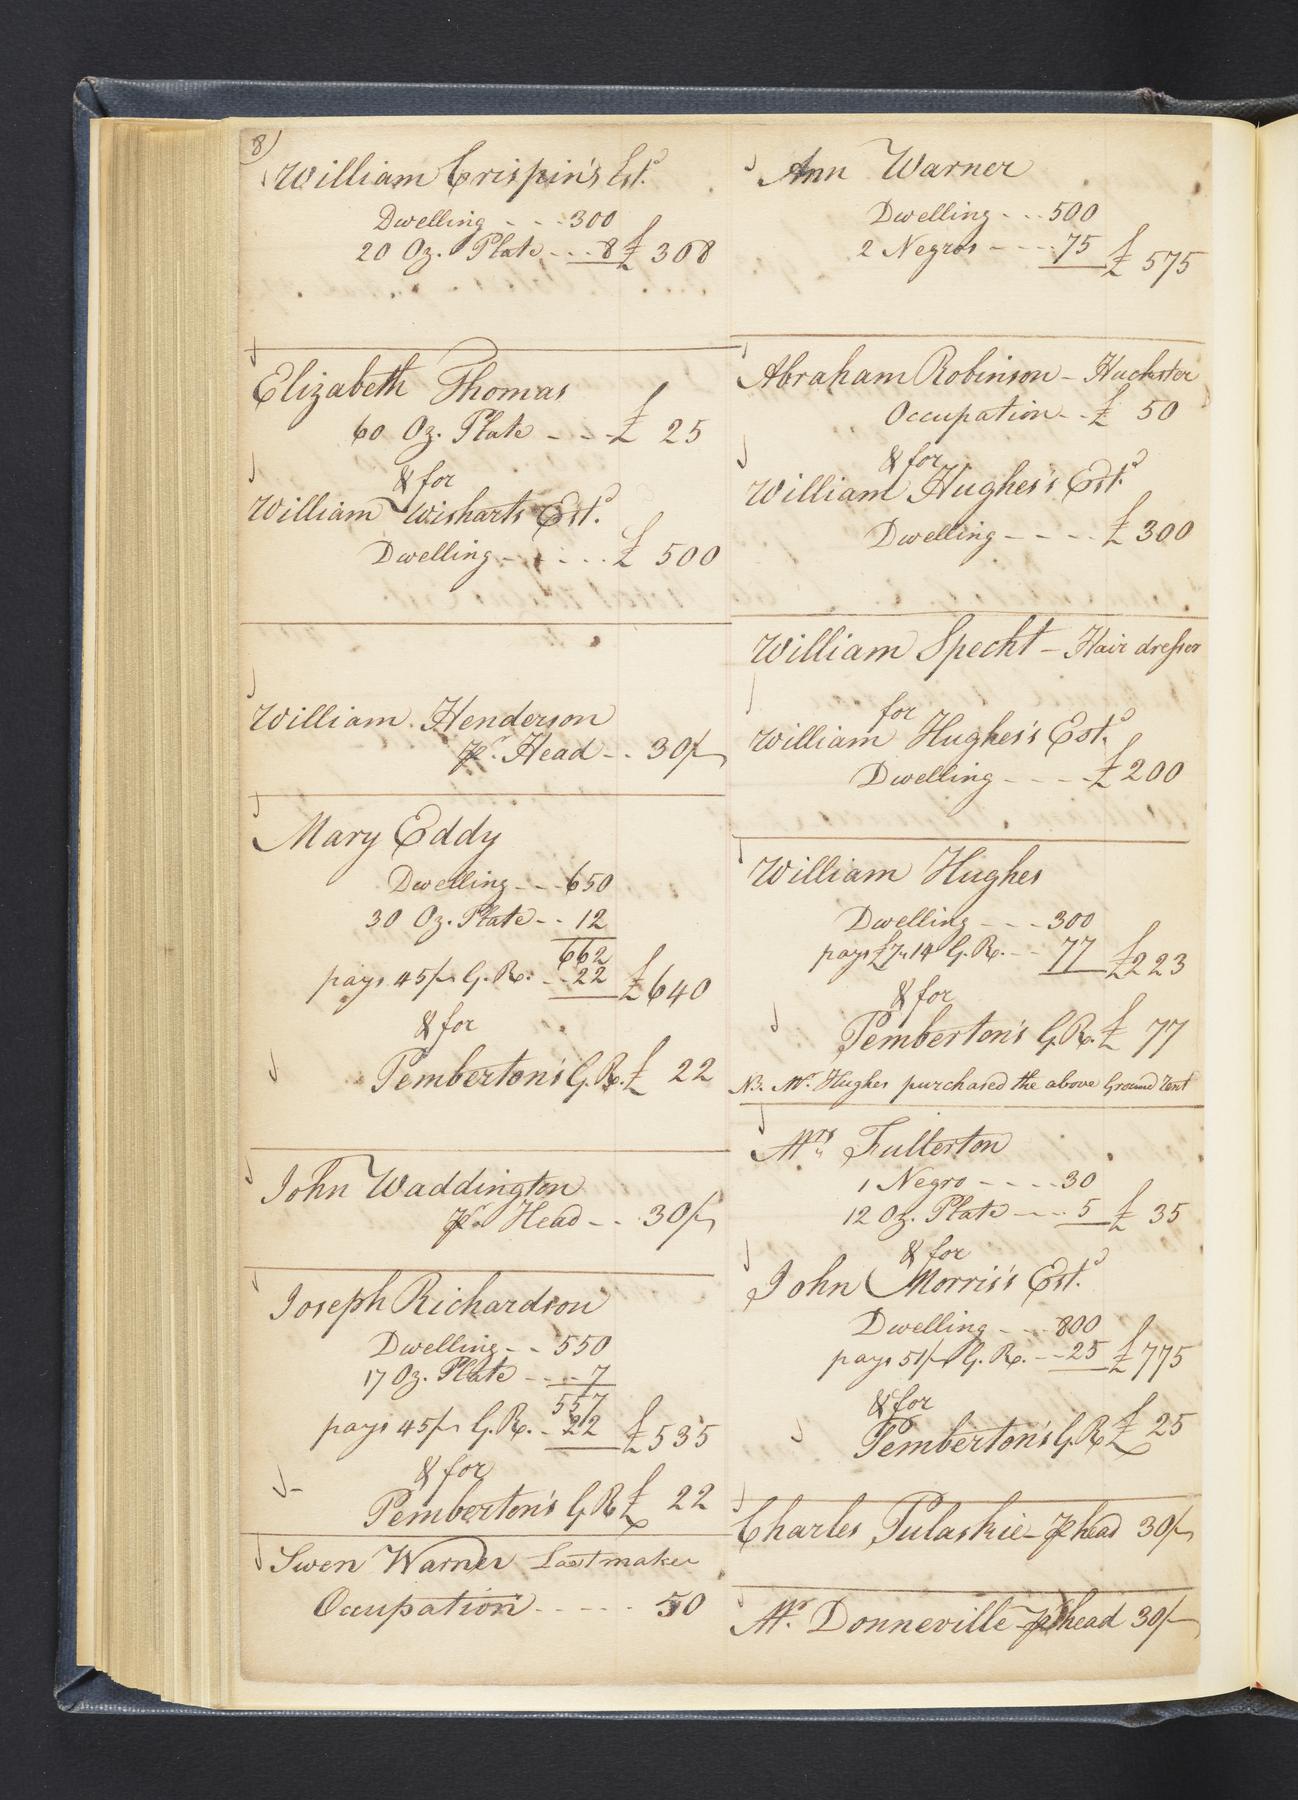 8)
William Crispin's Est.d
Dwelling - - - 300
20 Oz. Plate - - - 8 £ 308
Elizabeth Thomas
60 Oz. Plate - - - £ 25
& for
William Wisharts Est.d
Dwelling - - - - - £ 500
William Henderson
pr. Head - - 30/-
Mary Eddy
Dwelling - - - 650
30 Oz. Plate - - 12
662
pays 45/- G. R. - - 22 £ 640
& for
Pemberton's G. R. £ 22
John Waddington
pr. Head - - 30/-
Joseph Richardson
Dwelling - - 550
17 Oz. Plate - - - 7
557
pays 45/- G. R. - 22 £ 535
& for
Pemberton's G R £ 22
Swen Warner Lastmaker
Occupation - - - - - 50
Ann Warner
Dwelling - - - 500
2 Negros - - - - 75 £ 575
Abraham Robinson - Huckster
Occupation - - £ 50
& for
William Hughes's Est.d
Dwelling - - - - £ 300
William Specht - Hair dresser
for
William Hughes's Est.d
Dwelling - - - - £ 200
William Hughes
Dwelling - - - 300
pays £7.. 14 G. R. - - 77 £ 223
& for
Pemberton's G. R. £ 77
NB. Mr. Hughes purchased the above Ground Rent
Mrs. Fullerton
1 Negro - - - - 30
12 Oz. Plate - - - 5 £ 35
& for
John Morris's Est.d
Dwelling - - - 800
pays 51/- G. R. - - 25 £ 775
& for
Pemberton's G R £ 25
Charles Pulaskie - pr head 30/-
Mr. Donneville - pr head 30/-